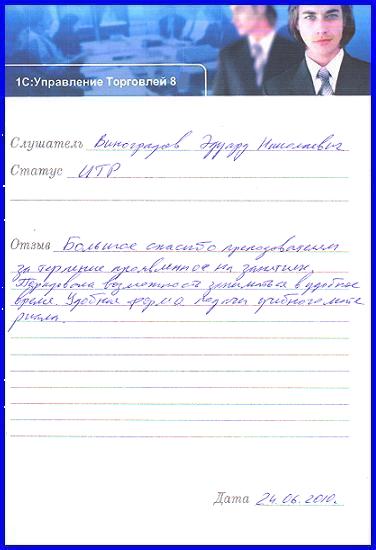 1С:Управление Торговлей 8
Слушатель Виноградов Эдуард Николаевич
Статус ИТР
Отзыв Большое спасибо преподавателям
за терпение проявленное на занятии.
Порадовала возможность заниматься в удобное
время. Удобная форма подачи учебного мате
риала.
Дата 24.06.2010.